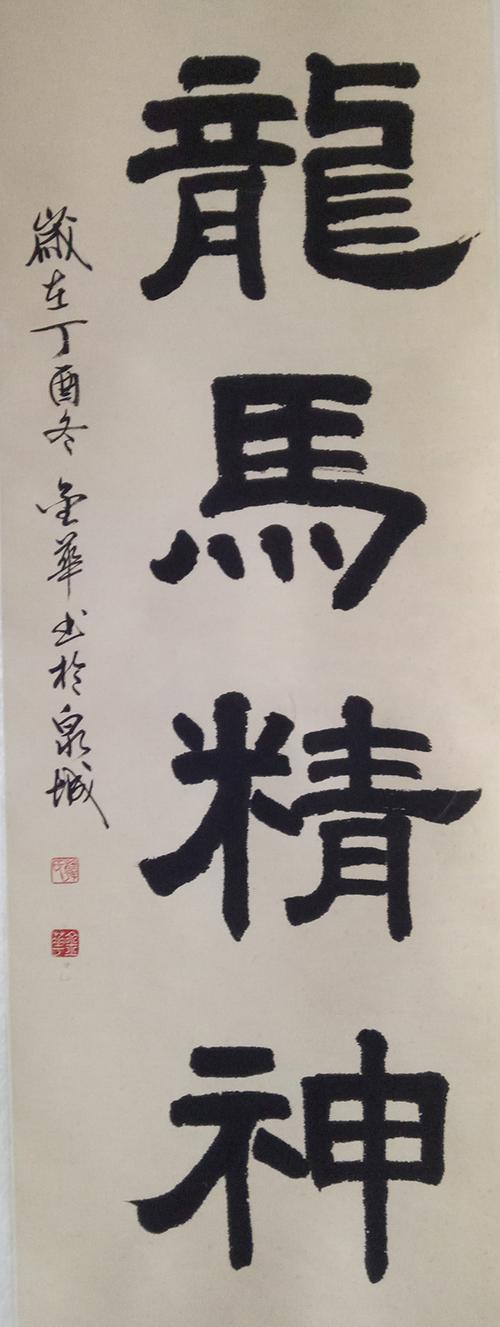 龍馬精神
歲在丁酉冬 金華书於泉城
金華